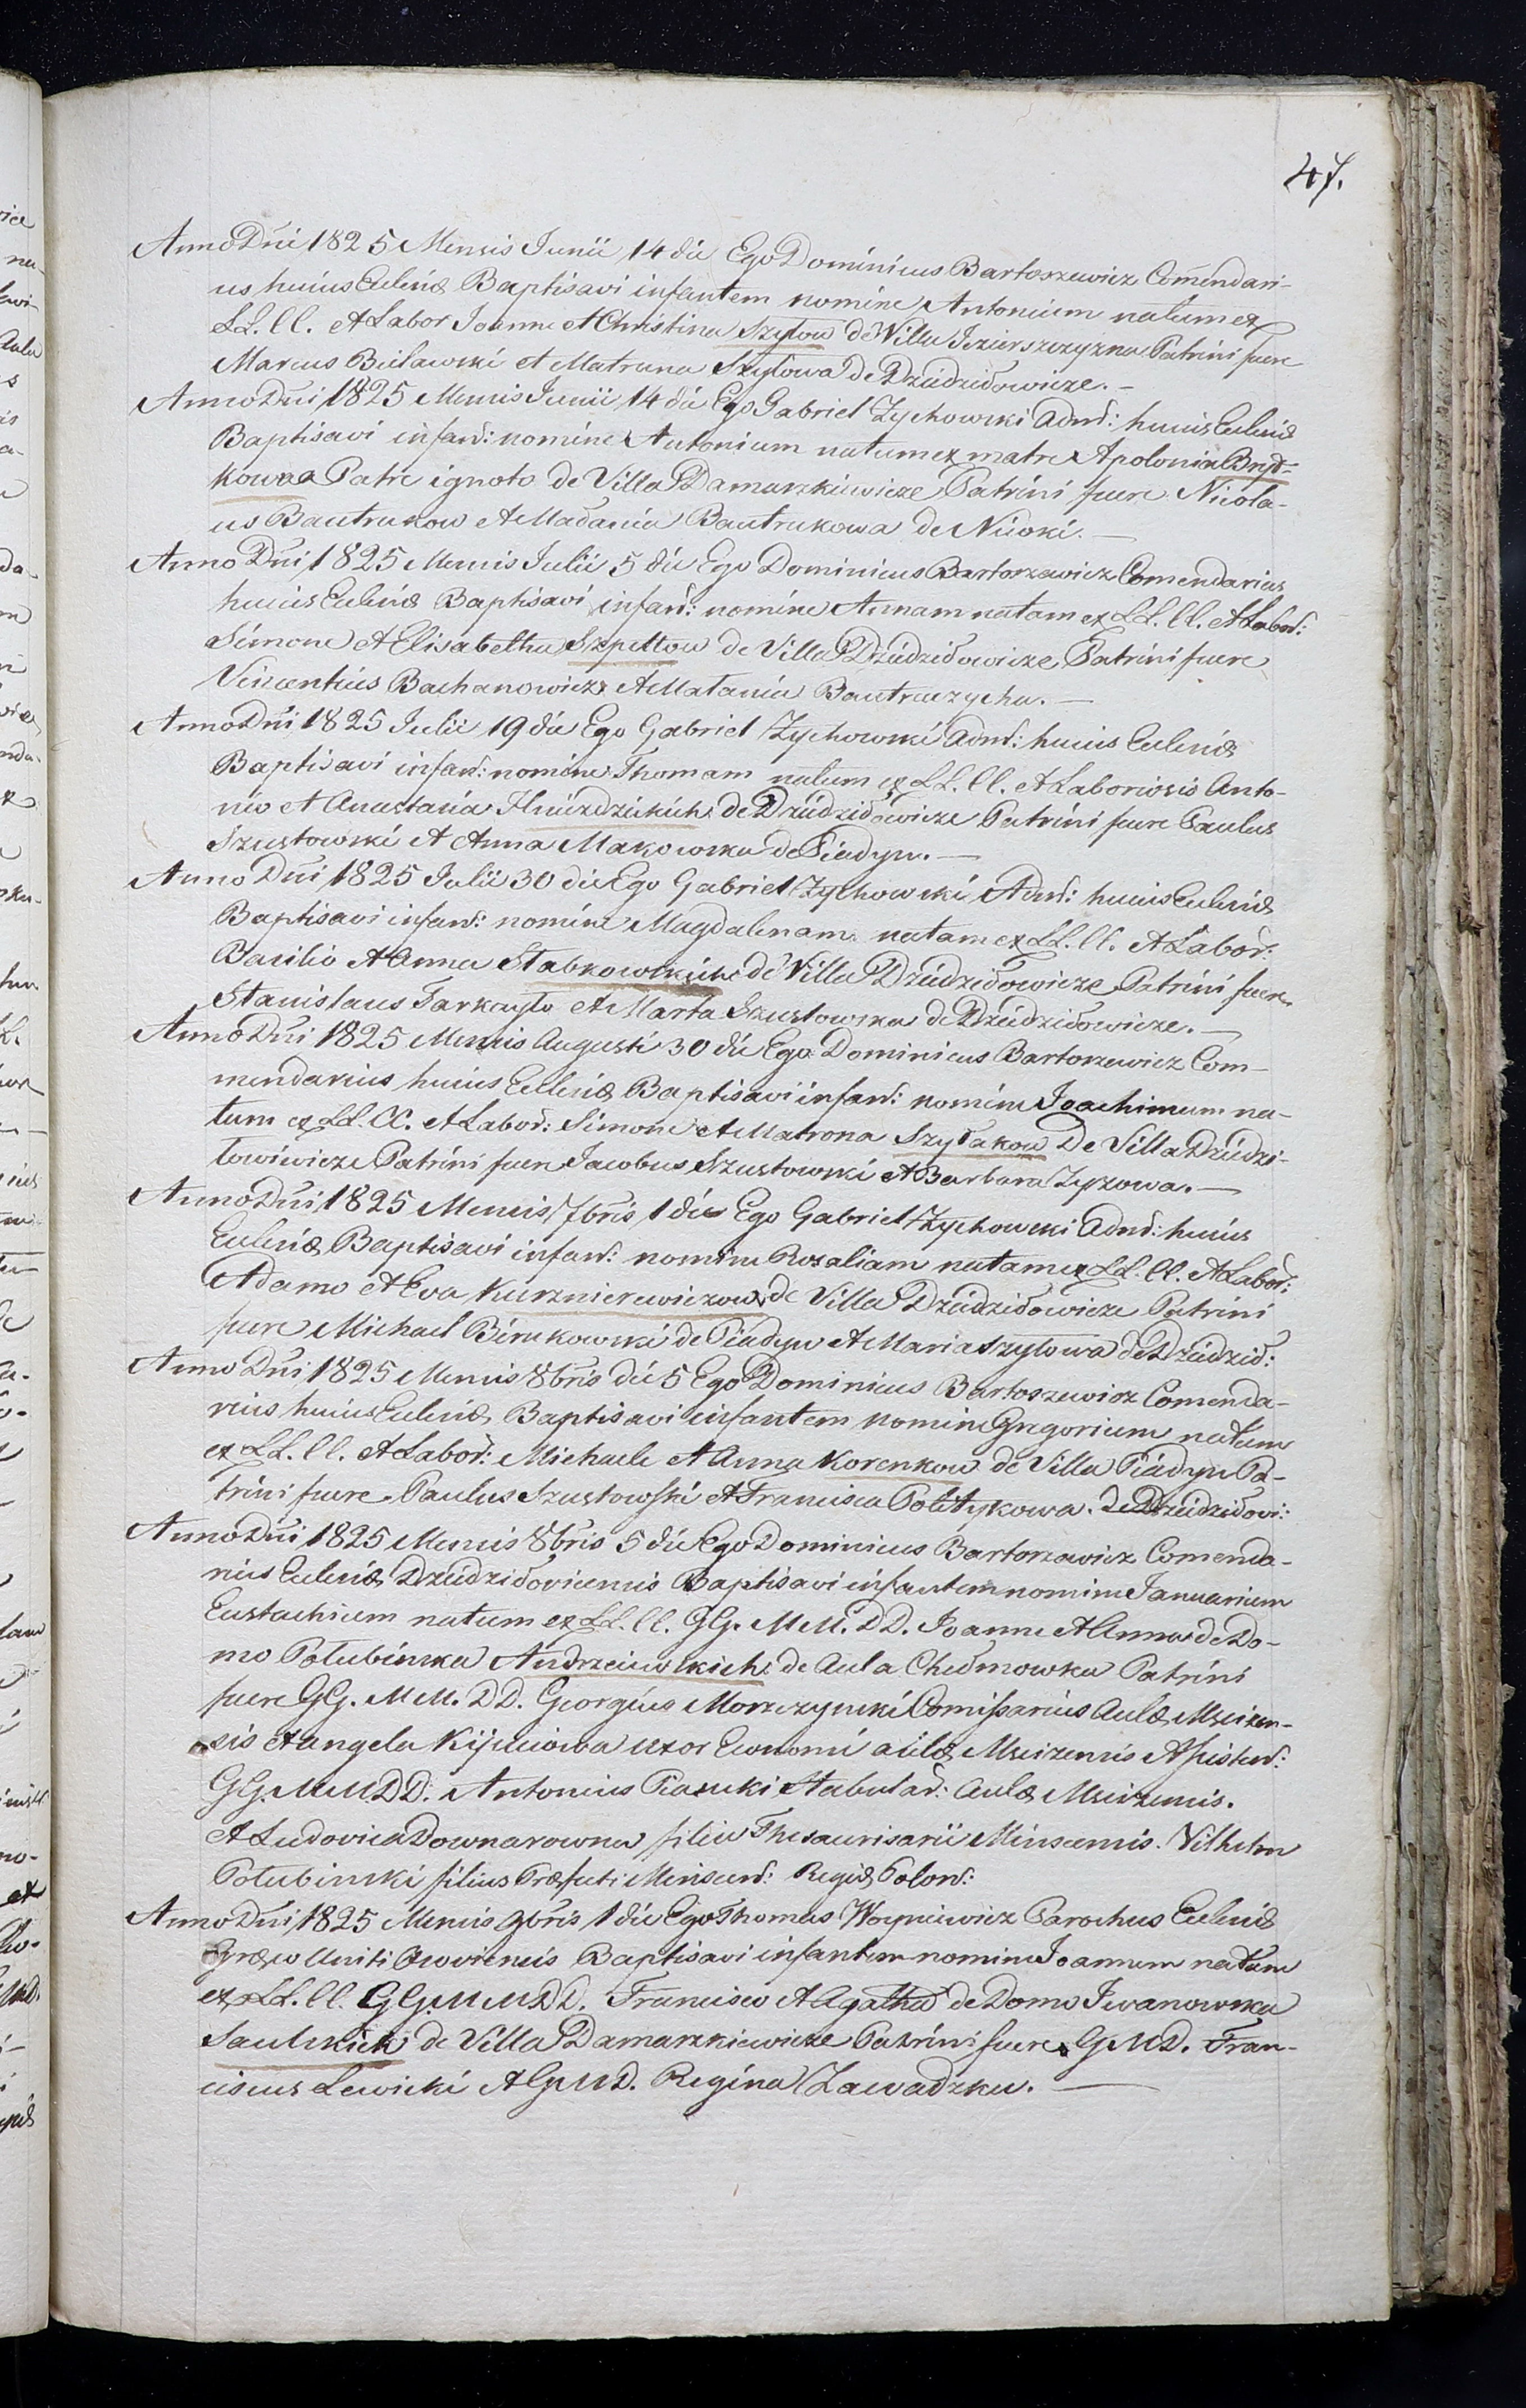 47.
Anno Dni 1825 Mensis Junii 14 die Ego Dominicus Bartoszewicz Comendari-
us huius Ecclesiæ Baptisavi infantem nomine Antonium natum ex
LL. CC. et Labor Joanne et Christina Szyłow de Villa Jezierszczyzna Patrini fuere
Marcus Bielawski et Matruna Szyłowa de Dziedziłowicze. –
Anno Dni 1825 Mensis Junii 14 die Ego Gabriel Zychowski Admi: huius Ecclesiæ
Baptisavi infan: nomine Antonium natum ex matre Apolonia
Patre ignoto de Villa Damaszkiewicze Patrini fuere Nicola-
us Bautrukow et Madania Bautrukowa de Nioki. –
Anno Dni 1825 Mensis Julii 5 die Ego Dominicus Bartoszewicz Comendarius
huius Ecclesiæ Baptisavi infan: nomine Annam natam ex LL. CC. et Labor:
Simone et Elisabetha Szpettow de Villa Dziedziłowicze Patrini fuere
Vincentius Bachanowicz et Matania Bautruczycha. –
Anno Dni 1825 Julii 19 die Ego Gabriel Zychowski Admi: huius Ecclesiæ
Baptisavi infan: nomine Thomam natum ex LL. CC. et Laboriosis Anto-
nio et Anastasia Hniezdzickich de Dziedziłowicze Patrini fuere Paulus
Szustowski et Anna Makowska de Piadyn. –
Anno Dni 1825 Julii 30 die Ego Gabriel Zychowski Admi: huius Ecclesiæ
Baptisavi infan: nomine Magdalenam natam ex LL. CC. et Labor:
Basilio et Anna Stabrowskich de Villa Dziedziłowicze Patrini fuere
Stanislaus Farkayło et Marta Szustowska de Dziedziłowicze. –
Anno Dni 1825 Mensis Augusti 30 die Ego Dominicus Bartoszewicz Com-
mendarius huius Ecclesiæ Baptisavi infan: nomine Joachimum na-
tum ex LL. CC. et Labor: Simone et Matrona Szyłakow De Villa Dziedzi-
łowiwicze Patrini fuere Jacobus Szustowski et Barbara Zyzowa. –
Anno Dni 1825 Mensis 7bris 1 die Ego Gabriel Zychowski Admi: huius
Ecclesiæ Baptisavi infan: nomine Rosaliam natam ex LL. CC. et Labor:
Adamo et Eva Kusznierewiczow de Villa Dziedziłowicze Patrini
fuere Michael Birukowski de Piadyn et Maria Szyłowa de Dziedził:
Anno Dni 1825 Mensis 8bris die 5 Ego Dominicus Bartoszewicz Comenda-
rius huius Ecclesiæ Baptisavi infantem nomine Gregorium natum
ex LL. CC. et Labor: Michaele et Anna Korenkow de Villa Piadyn Pa-
trini fuere Paulus Szustowski et Francisca Politykowa. de Dziedziłowi:
Anno Dni 1825 Mensis 8bris 5 die Ego Dominicus Bartoszewicz Comenda-
rius Ecclesiæ Dziedziłoviensis Baptisavi infantem nomine Januarium
Eustachium natum ex LL. CC. GG. MM. DD. Joanne et Anna de Do-
mo Połubinska Andrzeiewskich de Aula Chełmowka Patrini
fuere GG. MM. DD. Georgius Morszczynski Comissarius Aulæ Msciżen-
sis et Angela Kijuciowa uxor Economi aulæ Msciżensis Assisten:
GG. MM. DD. Antonius Piasecki Stabular: Aulæ Msciżensis.
et Ludovica Downarowna filia Thesaurisarii Minscensis. Vilhelm
Połubinski filius Præfecti Minscen: Regiæ Polon:
Anno Dni 1825 Mensis 9bris 1 die Ego Thomas Woyniewicz Parochus Ecclesiæ
Græco Uniti Baptisavi infantem nomine Joannem natum
ex LL. CC. GG. MM. DD. Francisco et Agatha de Domo Iwanowska
Saulskich de Villa Damaszkiewicze Patrini fuere GMD. Fran-
ciscus Lewicki et GMD. Regina Zawadzka. –